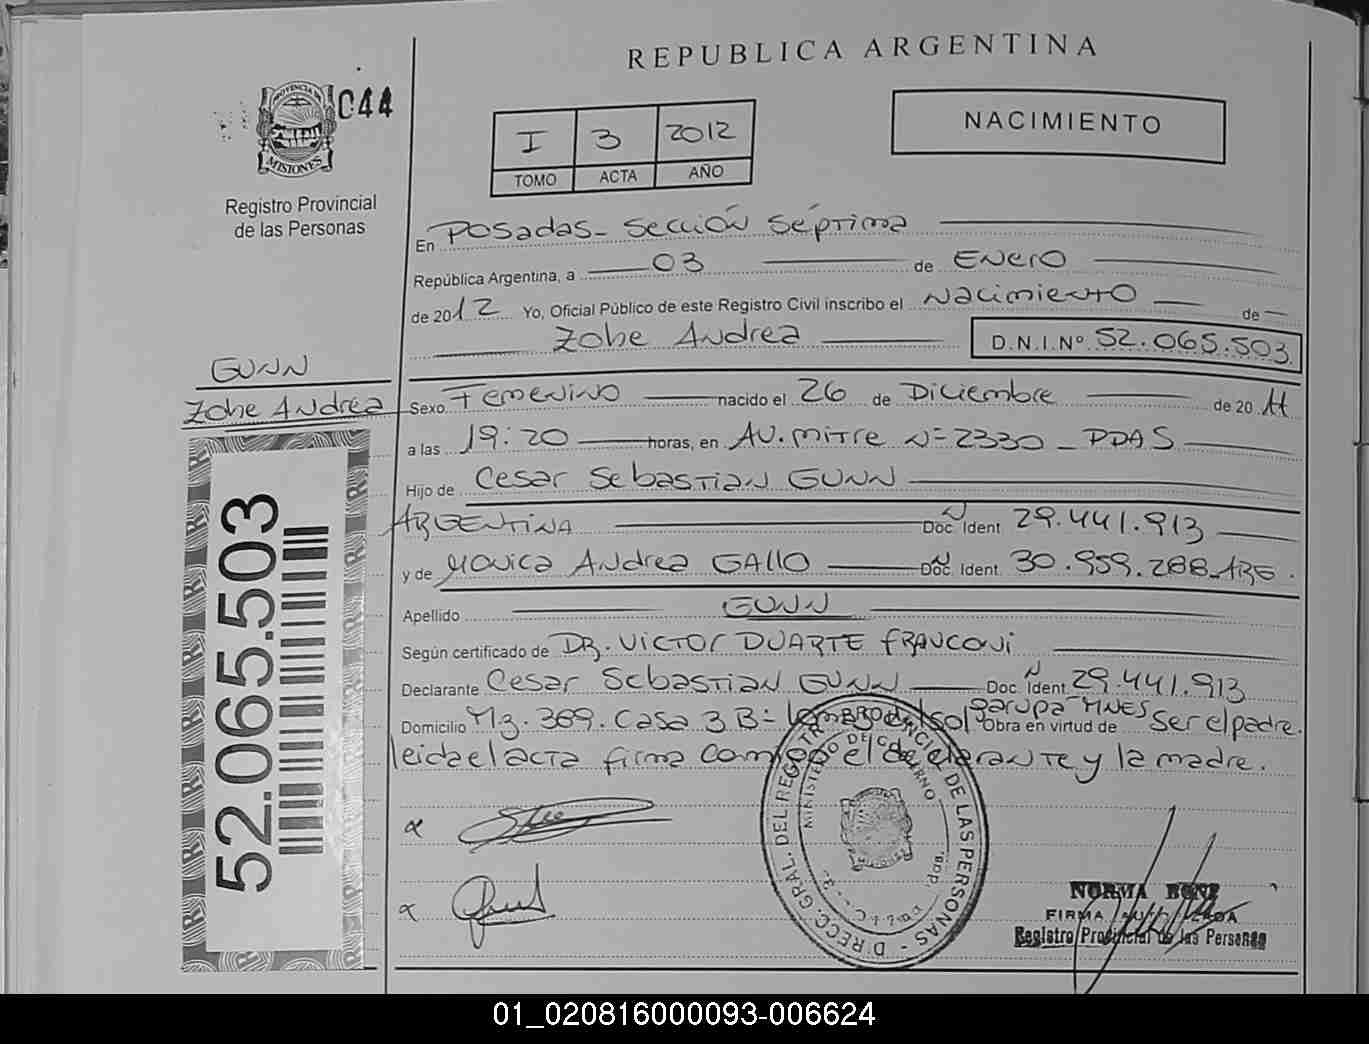 REPUBLICA ARGENTINA
044
PROVINCIA DE
MISIONES
Registro Provincial
de las Personas
I 3 2012
TOMO ACTA AÑO
NACIMIENTO
En Posadas - Sección Séptima
República Argentina, a 03 de Enero
de 2012 Yo, Oficial Público de este Registro Civil inscribo el Nacimiento de
Zohe Andrea D.N.I.Nº 52.065.503
GUNN
Zohe Andrea
Sexo Femenino nacido el 26 de Diciembre de 2011
a las 19:20 horas, en AV. Mitre Nº 2330 - PDAS
Hijo de Cesar Sebastian GUNN
ARGENTINA Doc. Ident 29.441.913
y de Monica Andrea GALLO Doc. Ident. 30.959.288 - ARG.
Apellido GUNN
Según certificado de DR. Victor DUARTE FRANCONi
Declarante Cesar Sebastian GUNN Doc. Ident. 29.441.913
Domicilio Mz. 389. Casa 3 Bº del sol Garupá - MNES Obra en virtud de Ser el padre.
leida el acta firma conmigo el declarante y la madre.
52.065.503
DIRECC. GRAL. DEL REGISTRO PROVINCIAL DE LAS PERSONAS
MINISTERIO DE GOBIERNO
NORMA BONE
FIRMA AUTORIZADA
Registro Provincial de las Personas
01_020816000093-006624